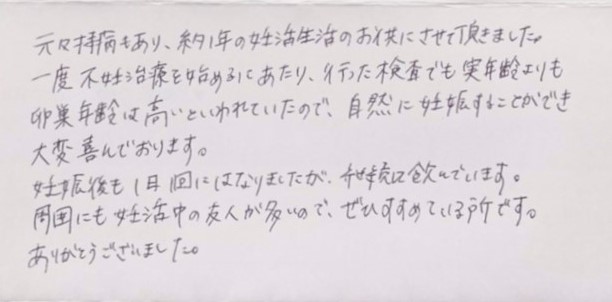 元々持病もあり、約1年の妊活生活のお供にさせて頂きました。
一度不妊治療を始めるにあたり、行った検査でも実年齢よりも
卵巣年齢は高いといわれていたので、自然に妊娠することができ
大変喜んでおります。
妊娠後も1日1回にはなりましたが、継続に飲んでいます。
周囲にも妊活中の友人が多いので、ぜひすすめている所です。
ありがとうございました。